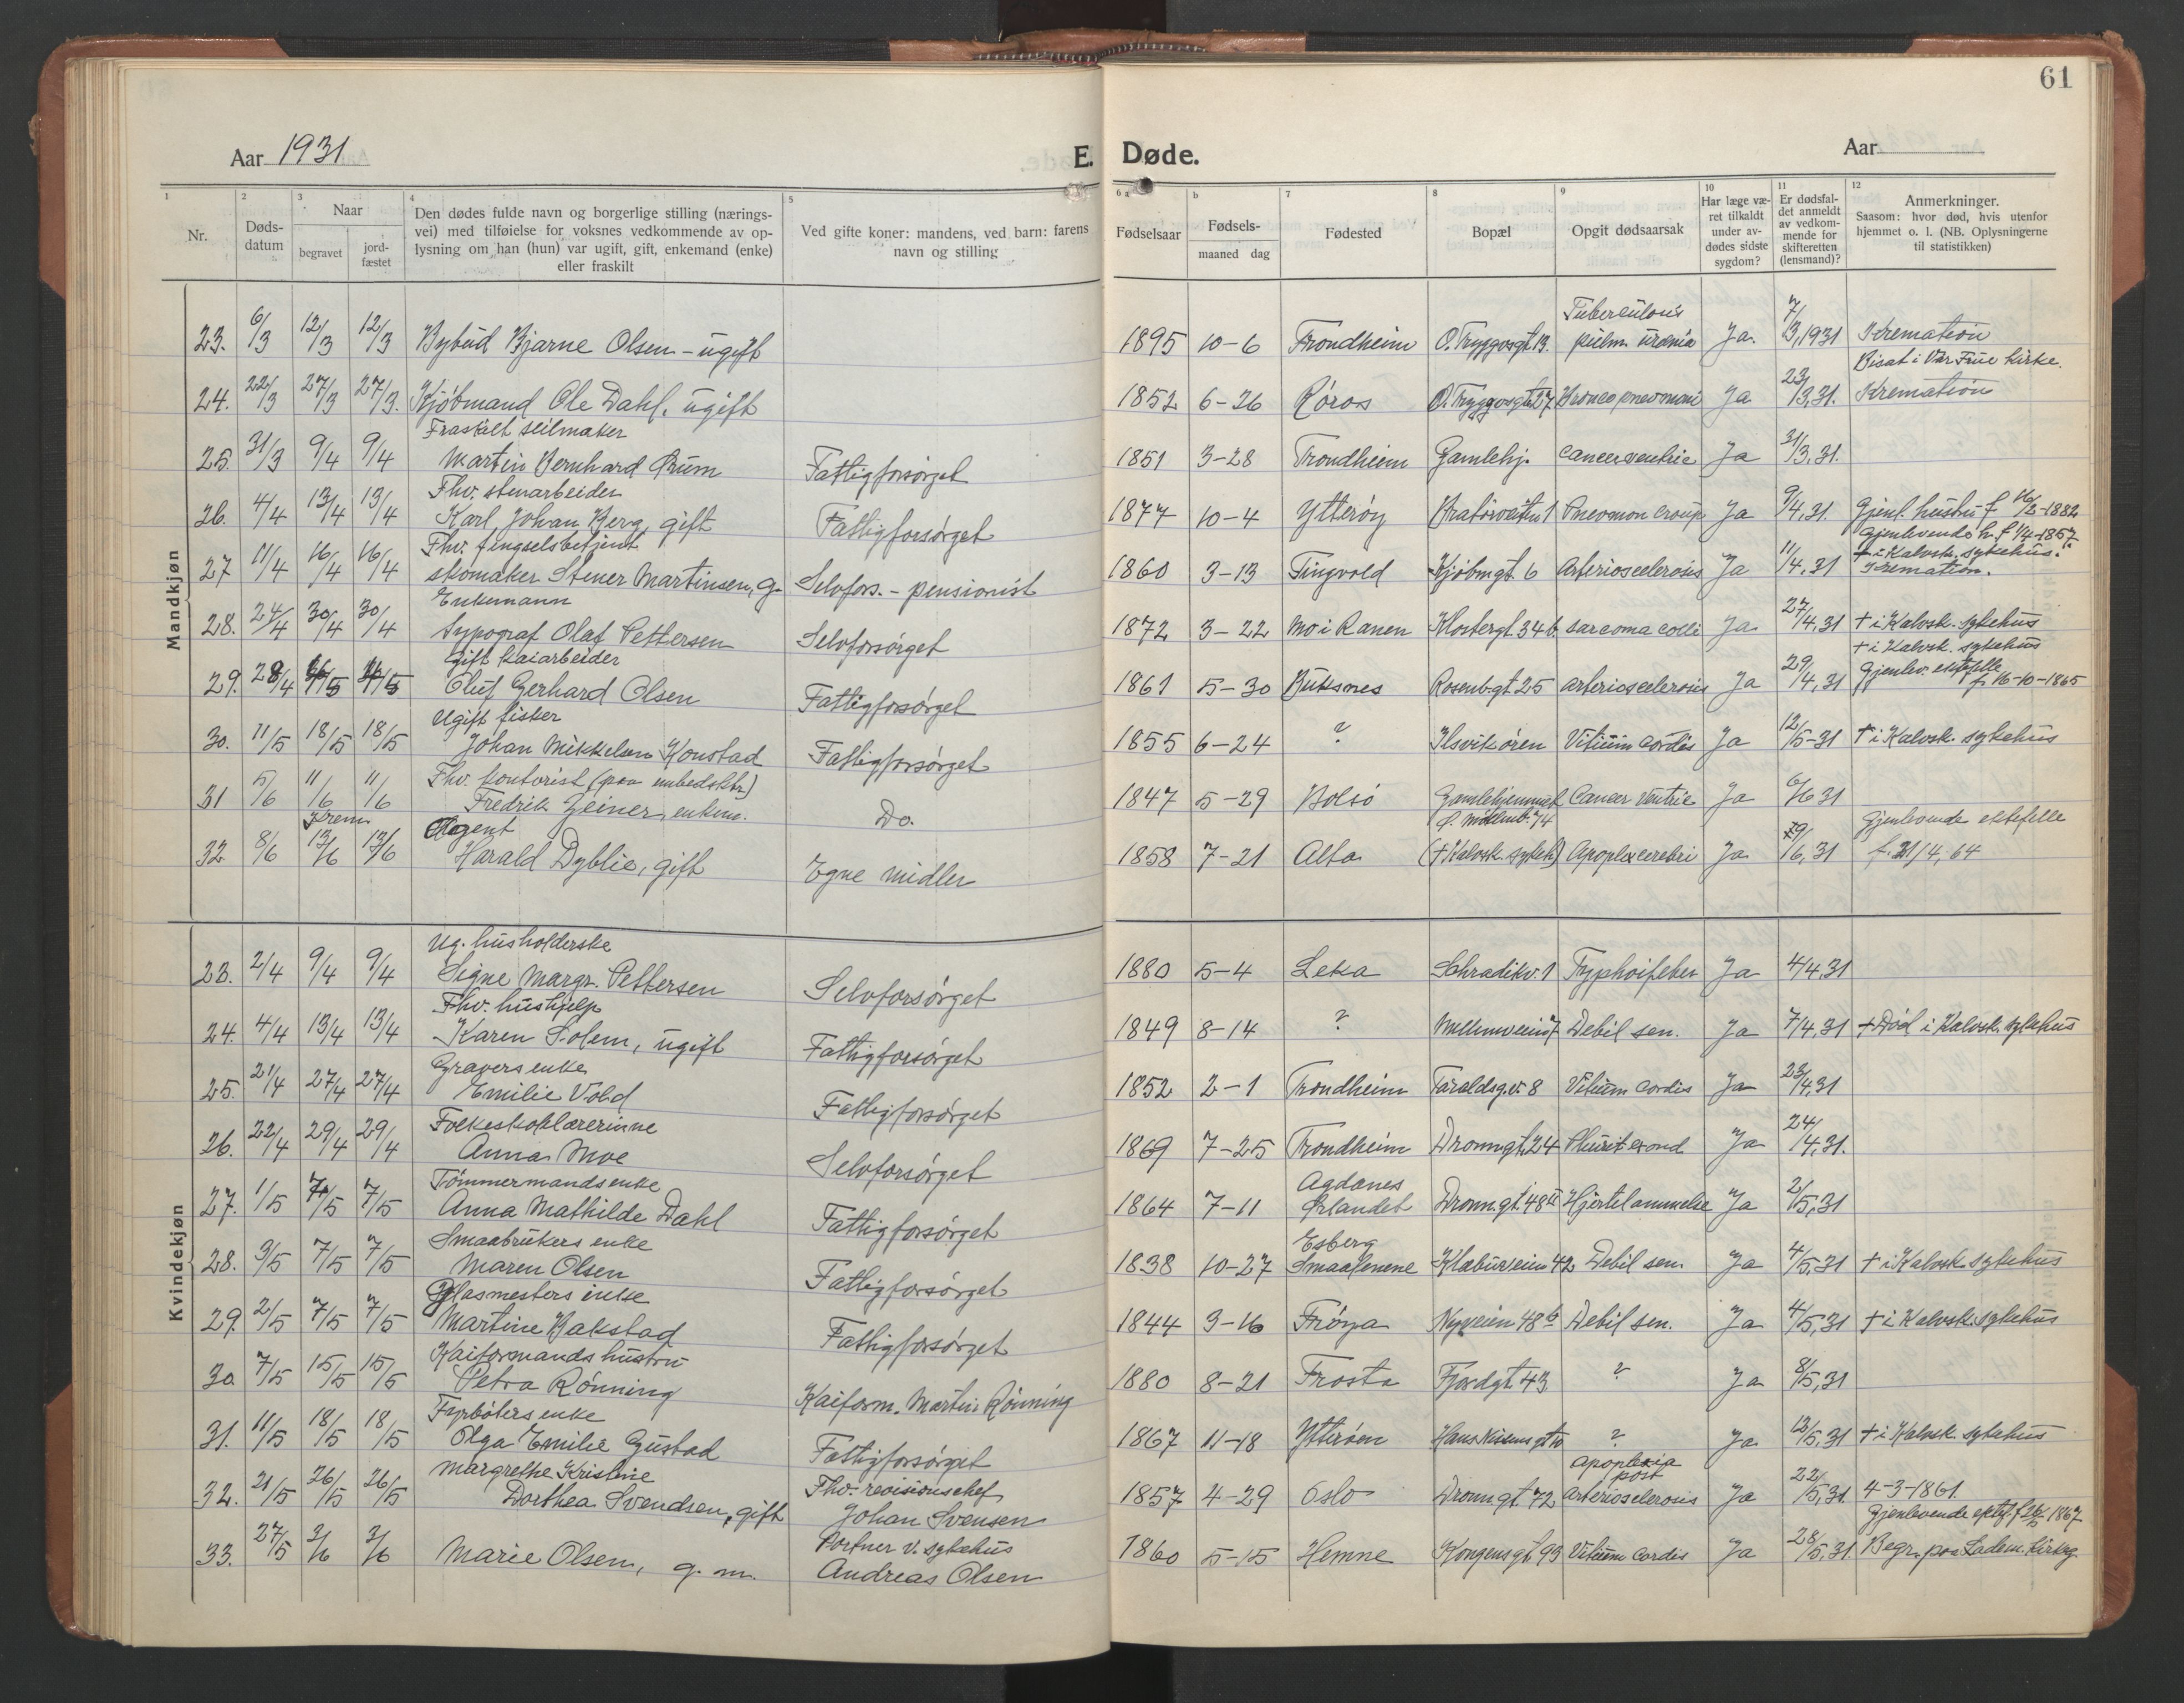 61
Aar 1931
E. Døde.
Aar
1 2 3 4 5 6 a b 7 8 9 10 11 12
Nr.
Døds-datum
Naar
begravet
jord-fæstet
Den dødes fulde navn og borgerlige stilling (nærings-
vei) med tilføielse for voksnes vedkommende av op-
lysning om han (hun) var ugift, gift, enkemand (enke)
eller fraskilt
Ved gifte koner: mandens, ved barn: farens
navn og stilling
Fødselsaar
Fødsels-
maaned dag
Fødested
Bopæl
Opgit dødsaarsak
Har læge væ-
ret tilkaldt
under av-
dødes sidste
sygdom?
Er dødsfal-
det anmeldt
av vedkom-
mende for
skifteretten
(lensmand)?
Anmerkninger.
Saasom: hvor død, hvis utenfor
hjemmet o. l. (NB. Oplysningerne
til statistikken)
Mandkjøn
23. 6/3 12/3 12/3 Bybud Bjarne Olsen - ugift 1895 10-6 Trondheim O. Tryggvsgt. 13. Tuberculosis pulm. Ja. 7/3, 1931 Kremation
Bisat i Vår Frue Kirke.
24. 22/3 27/3 27/3. Kjøbmand Ole Dahl, ugift 1852 6-26 Røros O. Tryggvsgt. 27 Broncopneomoni Ja 23/3, 31. Kremation
Fraskilt seilmaker
25. 31/3 9/4 9/4 Martin Bernhard Krum Fattigforsørget 1851 3-28 Trondheim Gamlehj. Cancer ventric Ja 31/3, 31.
Fhv. stenarbeider
26. 4/4 13/4 13/4 Karl Johan Berg, gift Fattigforsørget 1877 10-4 Ytterøy 1 Pneomon croup Ja 9/4, 31. Gjenl. hustru f. 16/2-1882
Fhv. fengselsbetjent
27 11/4 16/4 16/4 skomaker Stener Martinsen, g. Selvfors. - pensionist 1860 3-13 Tingvold Kjøbmgt. 6 Arteriosclerosis Ja 11/4, 31 Gjenlevende h. f. 1/4-1857
† i Kalvsk. sykehus.
Kremation.
Enkemann
28. 24/4 30/4 30/4 typograf Olaf Pettersen Selvforsørget 1872 3-22 Mo i Ranen Klostergt. 34 b sarcoma colli Ja 27/4, 31 † i Kalvsk. sykehus
Gift kaiarbeider
29. 28/4 Oluf Gerhard Olsen Fattigforsørget 1861 5-30 Buksnes Rosenb.gt 25 arteriosclerosis Ja 29/4, 31 † i Kalvsk. sykehus
Gjenlev. ektefelle
f. 16-10-1865
Ugift fisker
30. 11/5 18/5 18/5 Johan Mikkelsen Konstad Fattigforsørget 1855 6-24 ? Ilsvikøren Vitium cordis Ja 12/5-31 † i Kalvsk. sykehus
Fhv. kontorist (paa embedsktr.)
31 5/6 11/6 11/6 Fredrik Zeiner, enkem. Do. 1847 5-29 Bolsø Gamlehjemmet Cancer ventric Ja 6/6 31
Krem.
Agent
32 8/6 13/6 13/6 Harald Dyblie, gift Egne midler 1858 7-21 Alta Ø. Møllenb. 74
(† Kalvsk. sykeh) Apoplex cerebri Ja 9/6, 31 Gjenlevende ektefelle
f. 21/4, 64
Kvindekjøn
Ug. husholderske
23. 2/4 9/4 9/4 Signe Margr. Pettersen Selvforsørget 1880 5-4 Leka 1 Typhoifeber Ja 4/4, 31
Fhv. hushjelp
24. 4/4 13/4 13/4 Karen Solem, ugift Fattigforsørget 1849 8-14 ? Debil sen. Ja 7/4, 31 † Død i Kalvsk. sykehus
Gravers enke
25. 21/4 27/4 27/4 Emilie Vold Fattigforsørget 1852 2-1 Trondheim Taraldsg.v. 8 Vitium cordis Ja 23/4, 31
Folkeskolelærerinne
26. 22/4 29/4 29/4 Anna Moe Selvforsørget 1869 7-25 Trondheim Dronn.gt. 24 Pleurit exsud Ja 24/4, 31.
Tømmermandsenke
27. 1/5 7/5 7/5 Anna Mathilde Dahl Fattigforsørget 1864 7-11 Agdanes
Ørlandet Dronn.gt. 48 II Hjertelammelse Ja 2/5, 31
Smaabrukers enke
28. 3/5 7/5 7/5 Maren Olsen Fattigforsørget 1838 10-27 Esberg
Smaalenene Klæbuveien 42 Debil sen Ja 4/5, 31 † i Kalvsk. sykehus
Glasmesters enke
29. 2/5 7/5 7/5 Martine Bakstad Fattigforsørget 1844 3-16 Frøya Nyveien 48 b Debil sen. Ja 4/5, 31 † i Kalvsk. sykehus
Kaiformands hustru
30. 7/5 15/5 15/5 Petra Rønning Kaiform. Martin Rønning 1880 8-21 Frosta Fjordgt. 43 ? Ja 8/5, 31
Fyrbøters enke
31. 11/5 18/5 18/5 Olga Emilie Gustad Fattigforsørget 1867 11-18 Ytterøen Hans Nissens gt. 10 ? Ja 12/5, 31 † i Kalvsk. sykehus
Margrethe Kristine
32. 21/5 26/5 26/5 Dorthea Svendsen, gift Fhv. revisionschef
Johan Svensen 1857 4-29 Oslo Dronn.gt. 72 apoplexia
post
arteriosclerosis Ja 22/5, 31. 4-3-1861.
33. 27/5 3/6 3/6 Marie Olsen, g. m. Portner v. sykehus
Andreas Olsen 1860 5-15 Hemne Kongensgt. 93 Vitium cordis Ja 28/5, 31. Gjenlevende ektef. f. 1867
Begr. paa Ladem. Kirkeg.